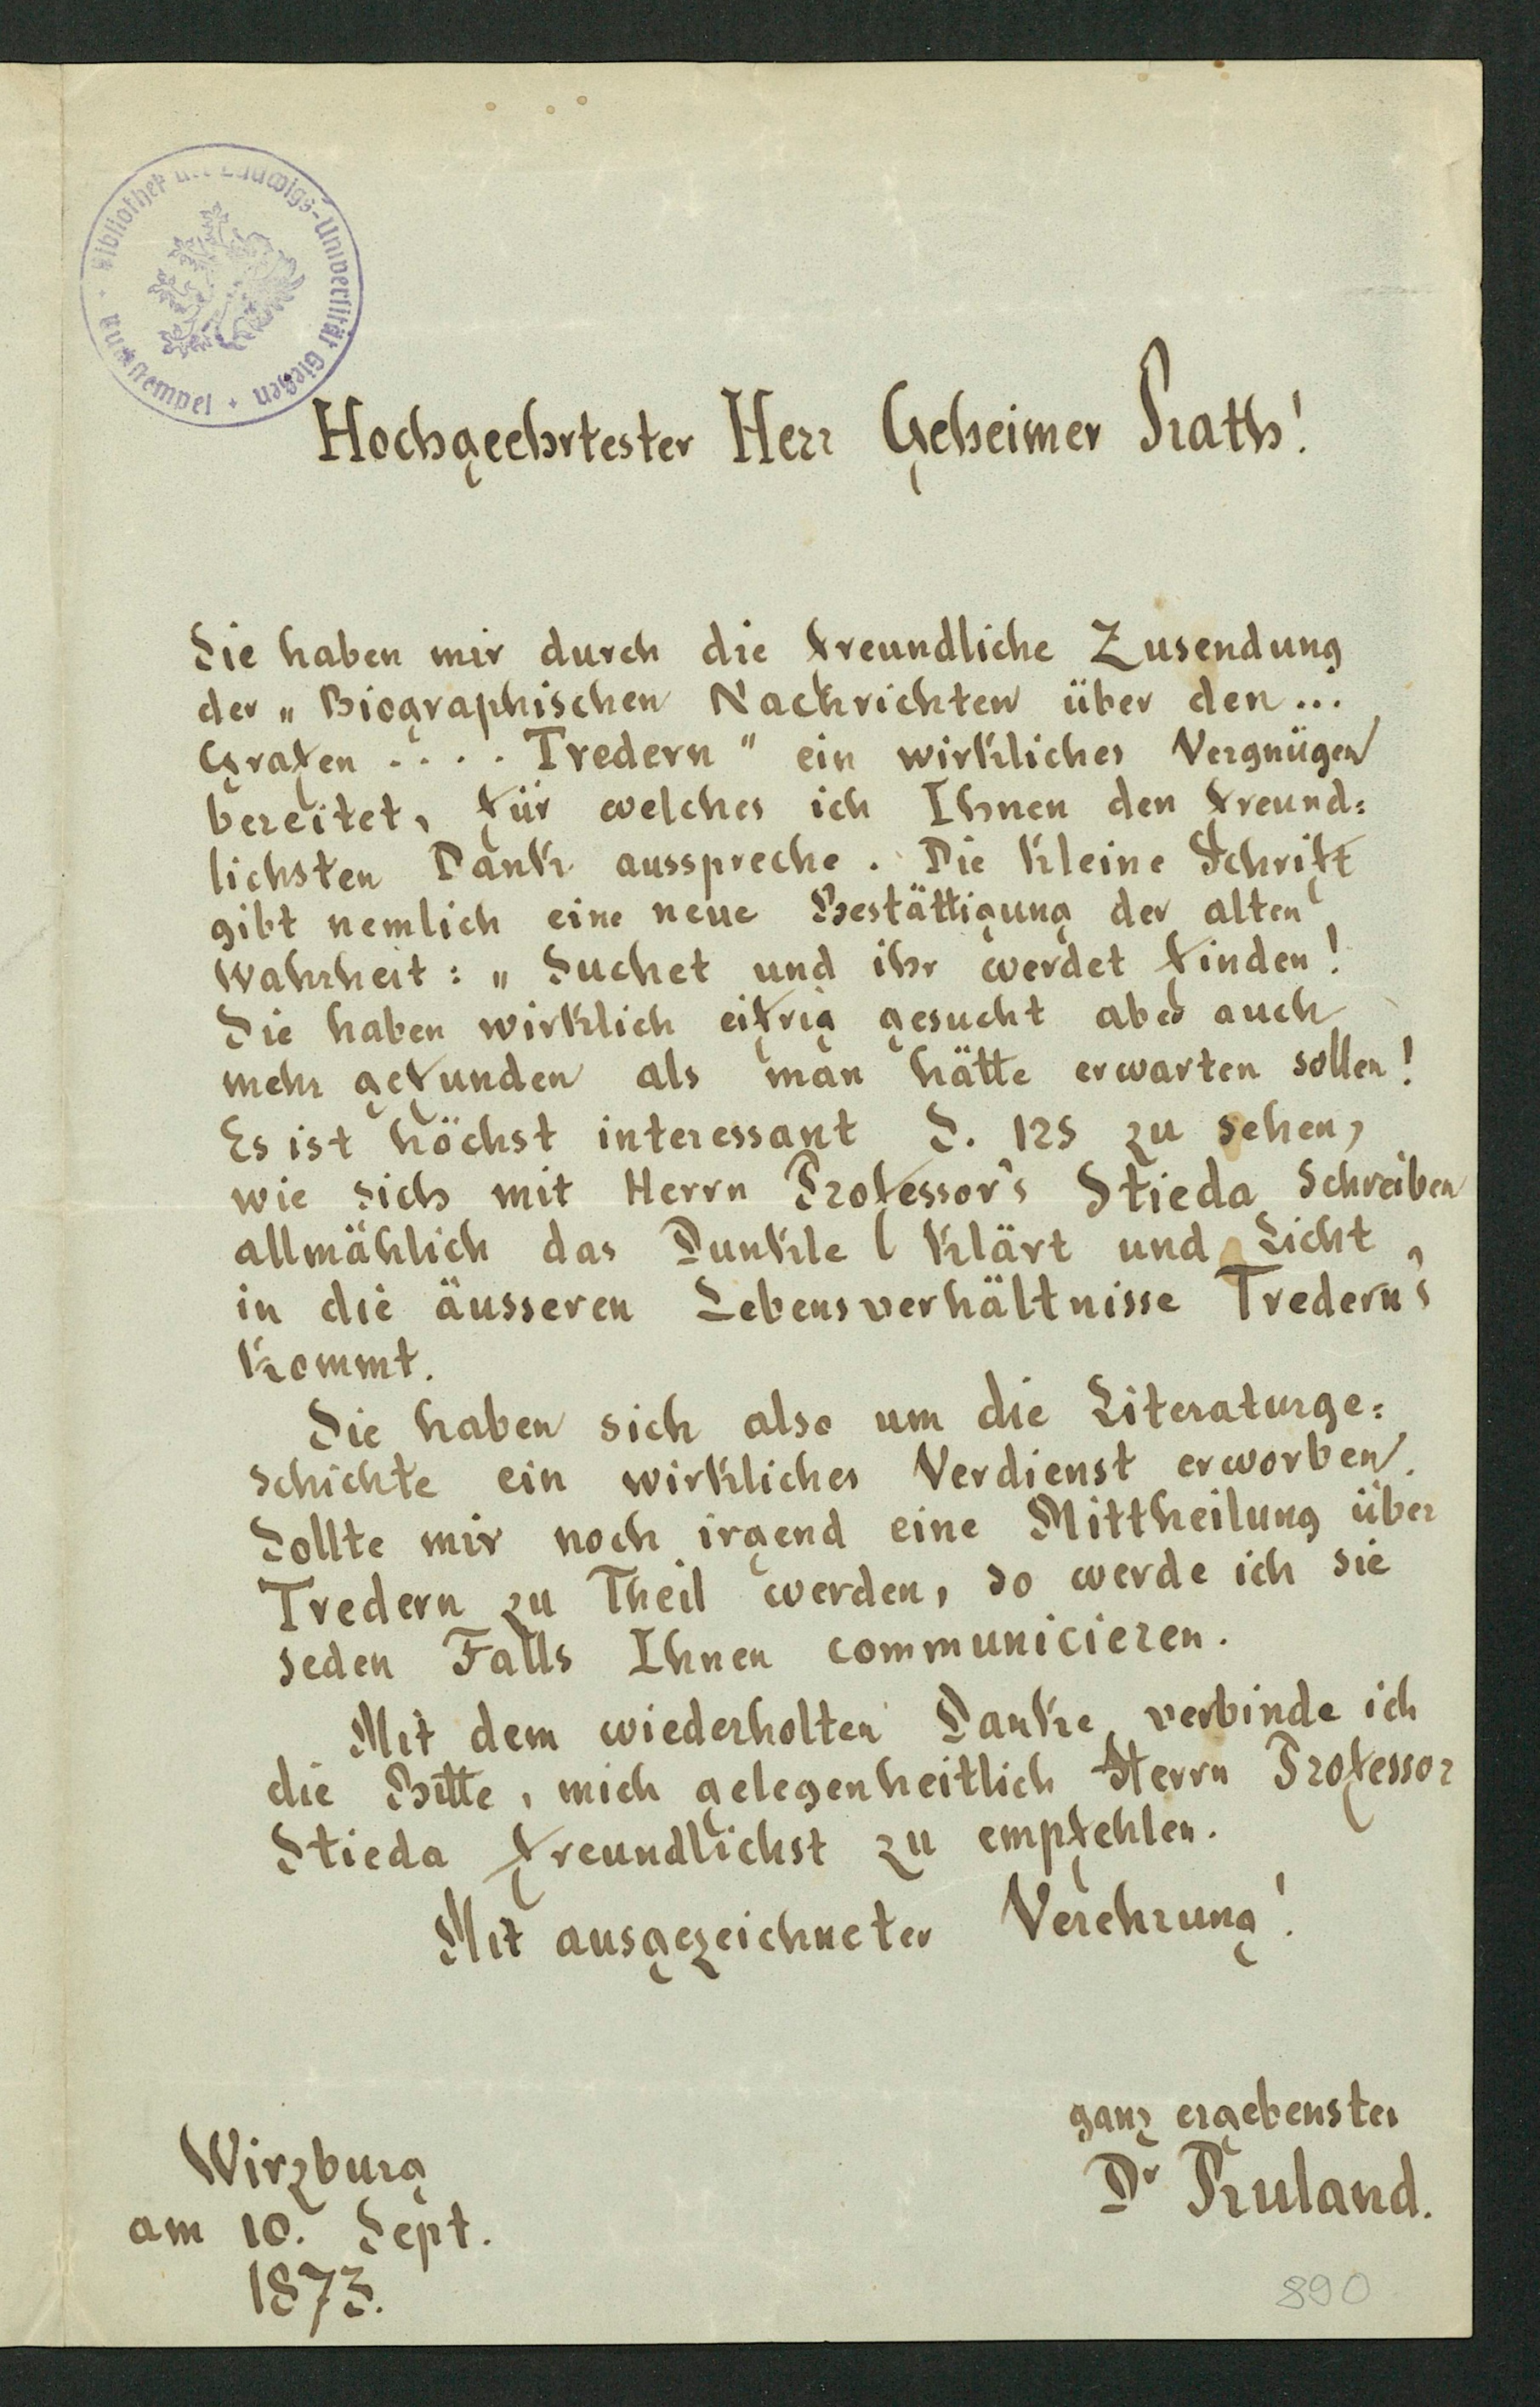 Bibliothek der Ludwigs-Universität Gießen
Hochgeehrtester Herr Geheimer Rath!
Sie haben mir durch die freundliche Zusendung
der „Biographischen Nachrichten über den...
Grafen .... Tredern" ein wirkliches Vergnügen
bereitet, für welches ich Ihnen den freund=
lichsten Dank ausspreche. Die kleine Schrift
gibt nemlich eine neue Bestättigung der alten
Wahrheit: „Suchet und ihr werdet finden!
Sie haben wirklich eifrig gesucht aber auch
mehr gefunden als man hätte erwarten sollen!
Es ist höchst interessant S. 125 zu sehen,
wie sich mit Herrn Professor's Stieda Schreiben
allmählich das Dunkle klärt und Licht
in die äusseren Lebensverhältnisse Tredern's
kommt.
Sie haben sich also um die Literaturge=
schichte ein wirkliches Verdienst erworben.
Sollte mir noch irgend eine Mittheilung über
Tredern zu Theil werden, so werde ich sie
jeden Falls Ihnen communicieren.
Mit dem wiederholten Danke verbinde ich
die Bitte, mich gelegenheitlich Herrn Professor
Stieda freundlichst zu empfehlen.
Mit ausgezeichneter Verehrung!
ganz ergebenster
Dr Ruland.
Wirzburg
am 10. Sept.
1873.
890